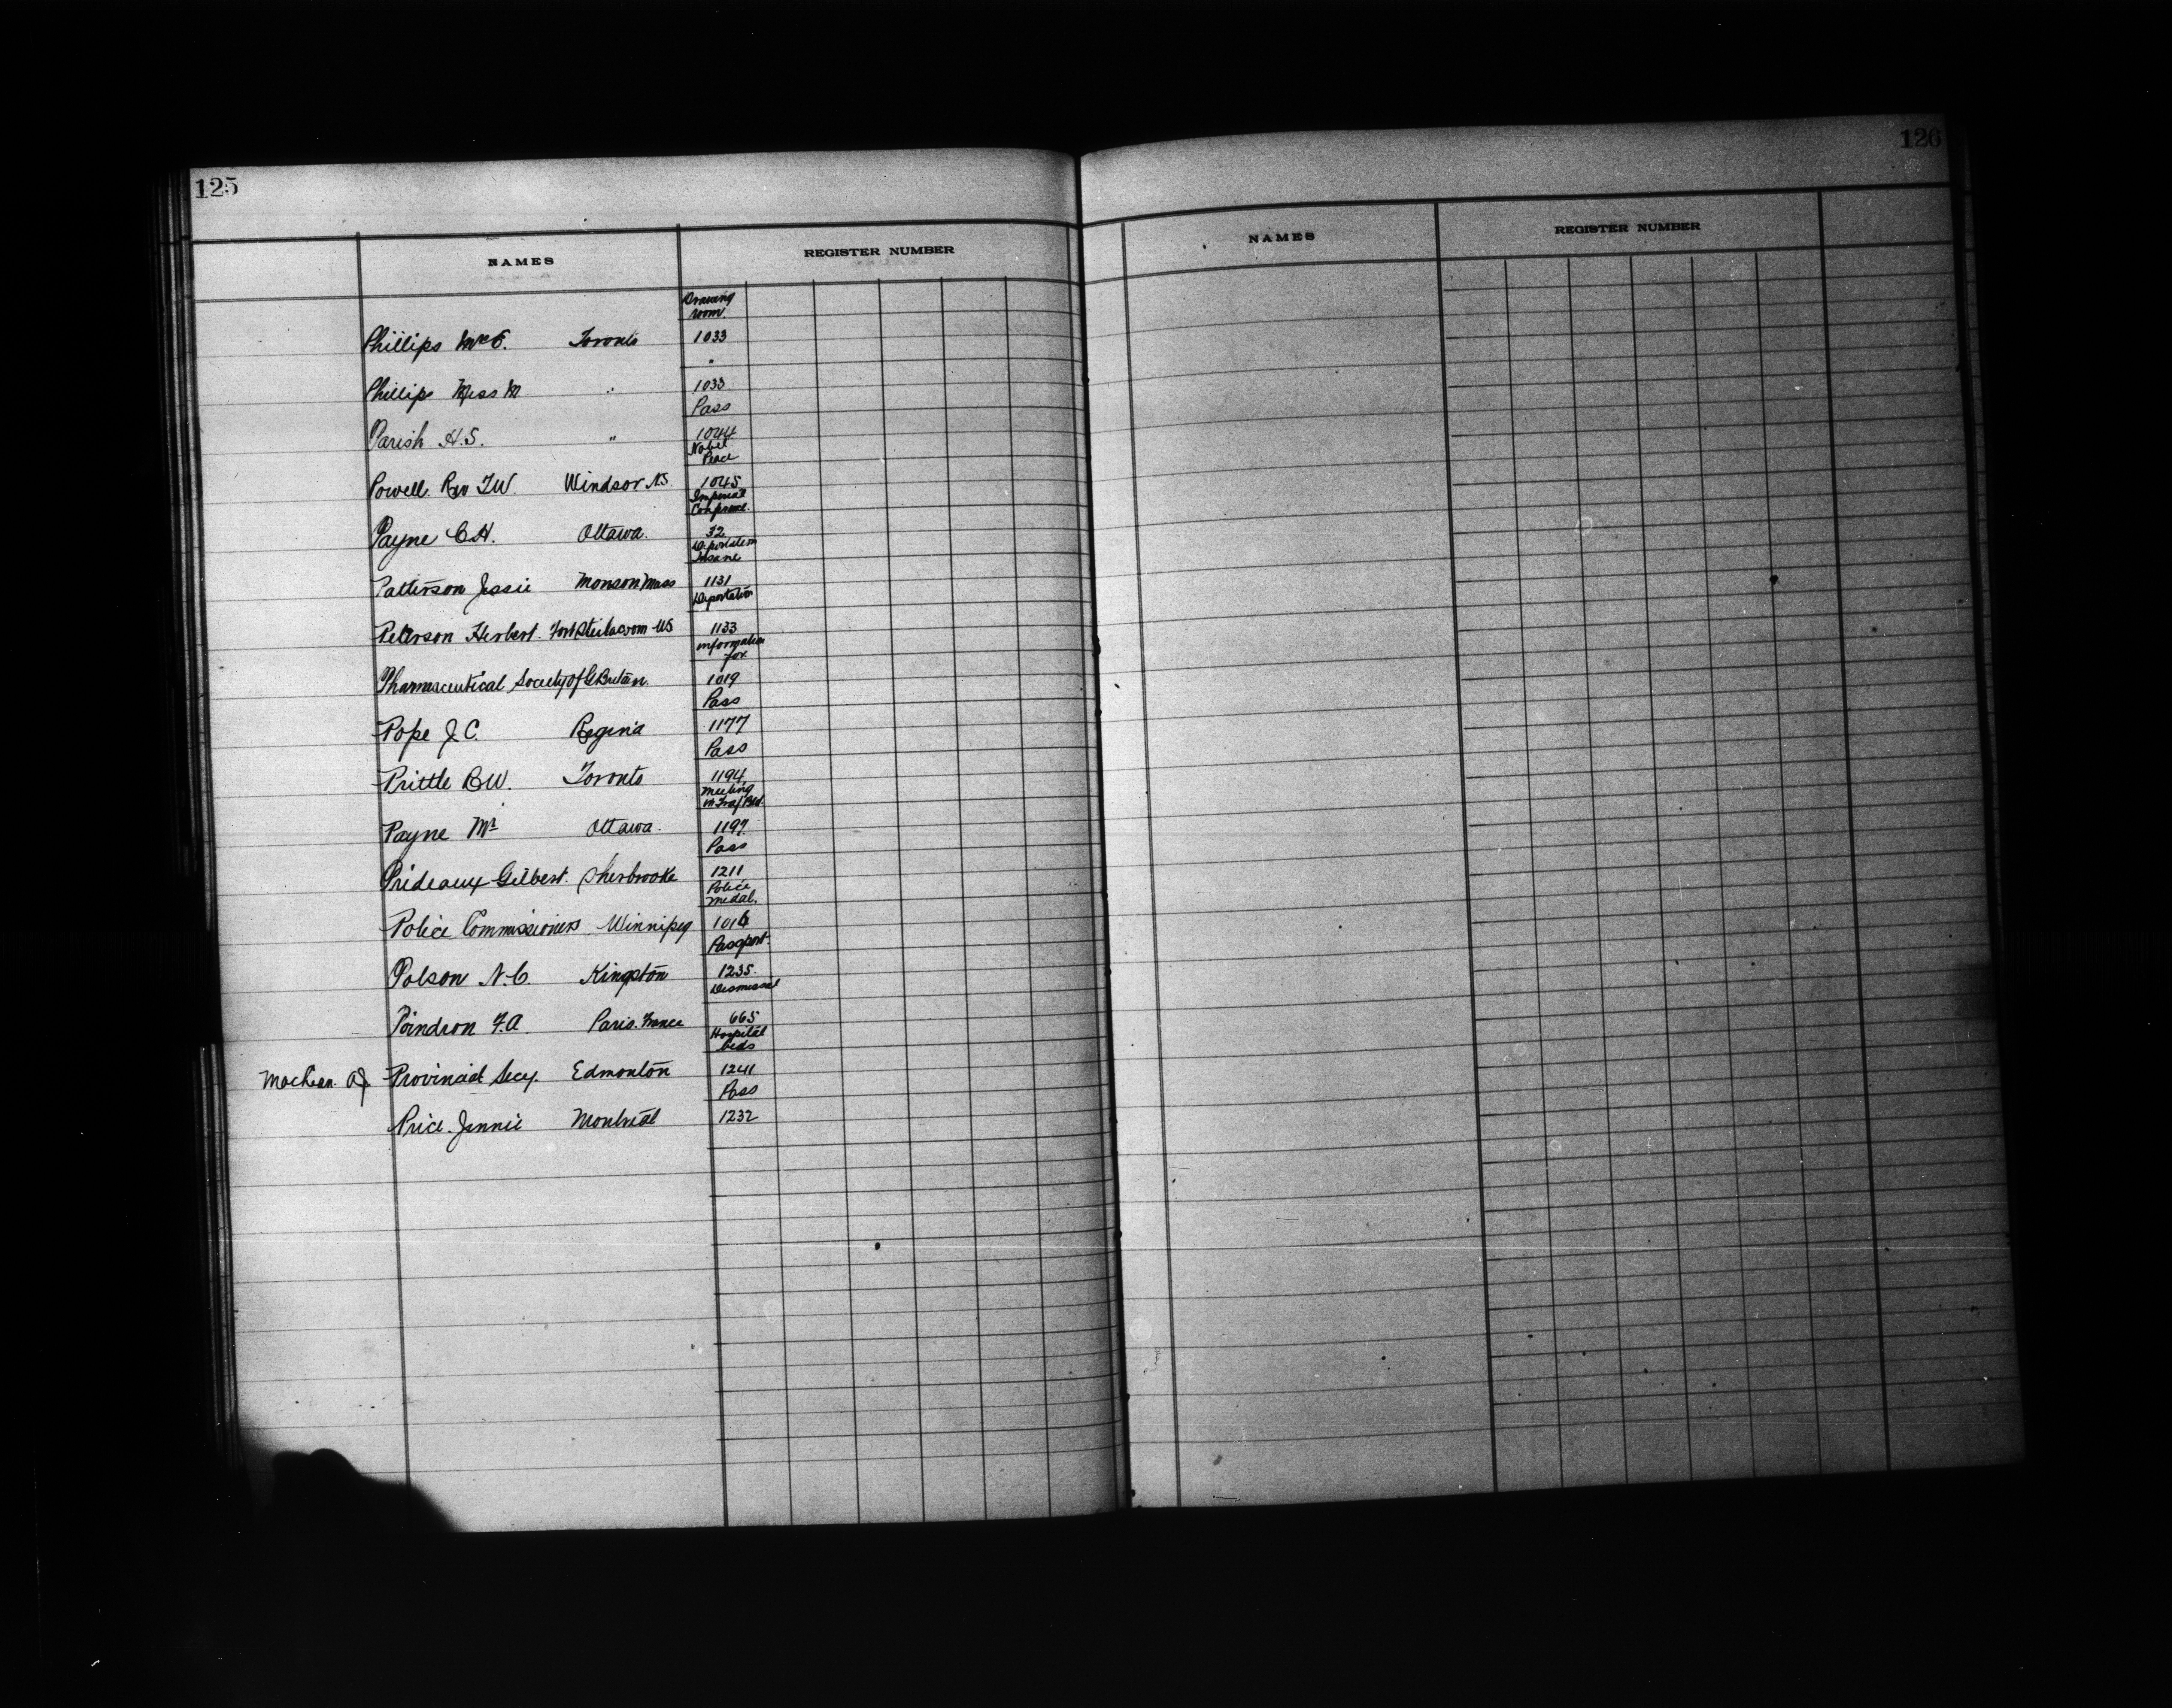 125
NAMES REGISTER NUMBER
Drawing
room.
Phillips Mrs E. Toronto 1033
"
Phillips Miss M " 1033
Pass
Parish H.S. " 1044
Nobel
Peace
Powell. Rev T.W. Windsor N.S. 1045
Imperial
Conference.
Payne C.H. Ottawa. 32
Deportation
Insane
Patterson Jessie Monson Mass 1131
Deportation
Peterson Herbert. Fort Steilacoom U.S 1133
information
for
Pharmaceutical Society of G Britain. 1019
Pass
Pope J.C. Regina 1177
Pass
Prittle B.W. Toronto 1194
Meeting
in Traf Bld.
Payne Mr Ottawa. 1197
Pass
Prideaux Gilbert. Sherbrooke 1211
Police
medal.
Police Commissioners. Winnipeg 1016
Passport.
Polson N.C. Kingston 1235.
Dismissal
Poindron F.A Paris. France 665
Hospital
beds
Provincial Secy. Edmonton 1241
Pass
Price. Jennie Montreal 1232
126
NAMES REGISTER NUMBER